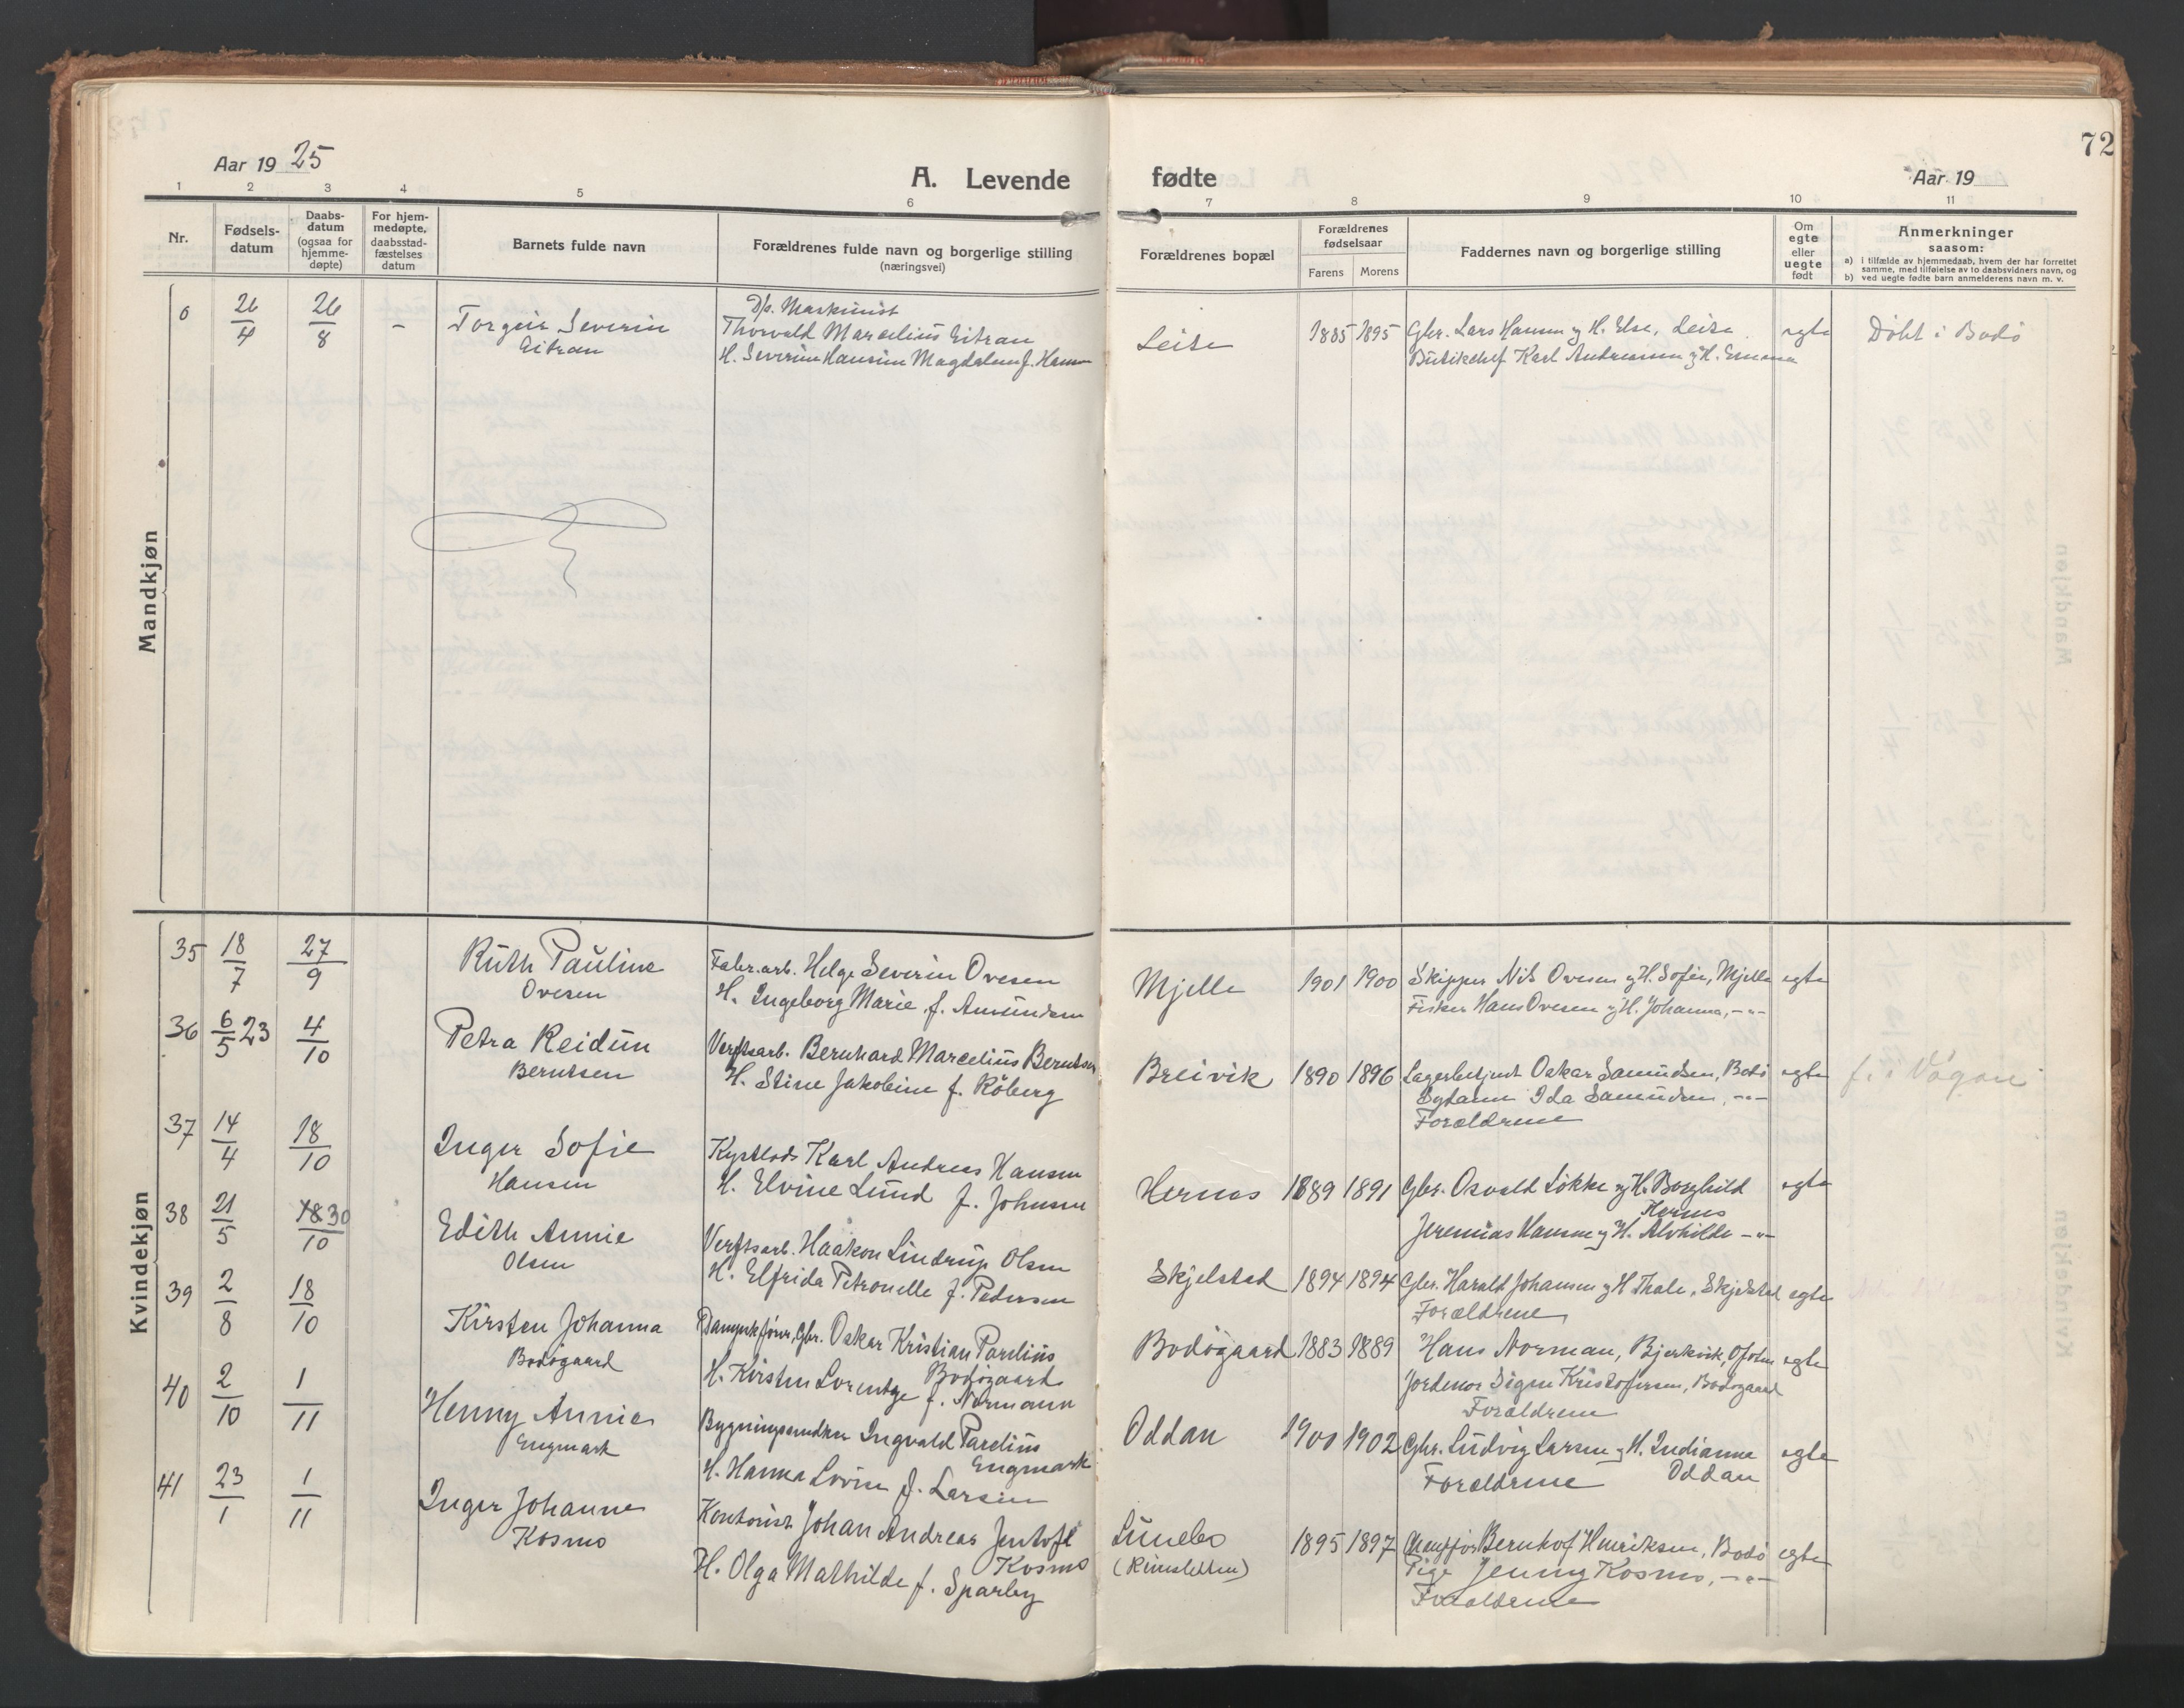 Aar 1925
A. Levende
fødte
Aar 19
72
1 2 3 4 5 6 7 8 9 10 11
Nr.
Fødsels-
datum
Daabs-
datum
(ogsaa for
hjemme-
døpte)
For hjem-
medøpte,
daabsstad-
fæstelses
datum
Barnets fulde navn
Forældrenes fulde navn og borgerlige stilling
(næringsvei)
Forældrenes bopæl
Forældrenes
fødselsaar
Farens Morens
Faddernes navn og borgerlige stilling
Om
egte
eller
uegte
født
Anmerkninger
saasom:
a) i tilfælde av hjemmedaab, hvem der har forrettet
samme, med tilføielse av to daabsvidners navn, og
b) ved uegte fødte barn anmelderens navn m. v.
Mandkjøn
6 26/4 26/8 - Torgeir Severin
Eitran
D/s. Maskinist
Thorvald Marcelius Eitran
H. Severine Hansine Magdalena f. Hansen
Leite 1885 1895
Gbr. Lars Hansen og H. Else, Leite
Butikchef Karl Andreassen og H. Emma
egte Døbt i Bodø
Kvindekjøn
35 18/7 27/9 Ruth Pauline
Ovesen
Fabr.arb. Helge Severin Ovesen
H. Ingeborg Marie f. Amundsen
Mjelle 1901 1900
Skipper Nils Ovesen og H. Sofie, Mjelle
Fisker Hans Ovesen og H. Johanna, -"-
egte
36 6/5 23 4/10 Petra Reidun
Berntsen
Verftsarb. Bernhard Marcelius Berntsen
H. Stine Jakobine f. Röberg
Breivik 1890 1896
Lagerbetjent Oskar Samuelsen, Bodø
Sydame Ida Samuelsen, -"-
Forældrene
egte f. i Vågan
37 14/4 18/10 Inger Sofie
Hansen
Kystlods Karl Andreas Hansen
H. Elvine Lund f. Johnsen
Hernes 1889 1891
Gbr. Osvald Løkke og H. Borghild
Hernes
Jeremias Hansen og H. Alvhilde -"-
egte
38 21/5 18 30/10 Edith Annie
Olsen
Verftsarb. Haakon Lindrup Olsen
H. Elfrida Petronelle f. Pedersen
Skjelstad 1894 1894
Gbr. Harald Johansen og H Thale, Skjelstad
Forældrene
egte
39 2/8 18/10 Kirsten Johanna
Bodøgaard
Dampskfører, Gbr. Oskar Kristian Parelius
Bodøgaard
H. Kirsten Lorentze f. Normann
Bodøgaard 1883 1889
Hans Norman, Bjerkvik, Ofoten
Jordmor Signe Kristofersen, Bodøgaard
Forældrene
egte
40 2/10 1/11 Henny Annie
Engmark
Bygningssnedker Ingvald Parelius
Engmark
H. Hanna Lovise f. Larsen
Oddan 1900 1902
Gbr. Ludvig Larsen og H. Indianna
Oddan
Forældrene
egte
41 23/1 1/11 Inger Johanne
Kosmo
Kontorist Johan Andreas Jentoft
Kosmo
H. Olga Mathilde f. Sparby
Lunebo
(Rensletten)
1895 1897
Bernhof Henriksen, Bodø
Pige Jenny Kosmo, -"-
Forældrene
egte